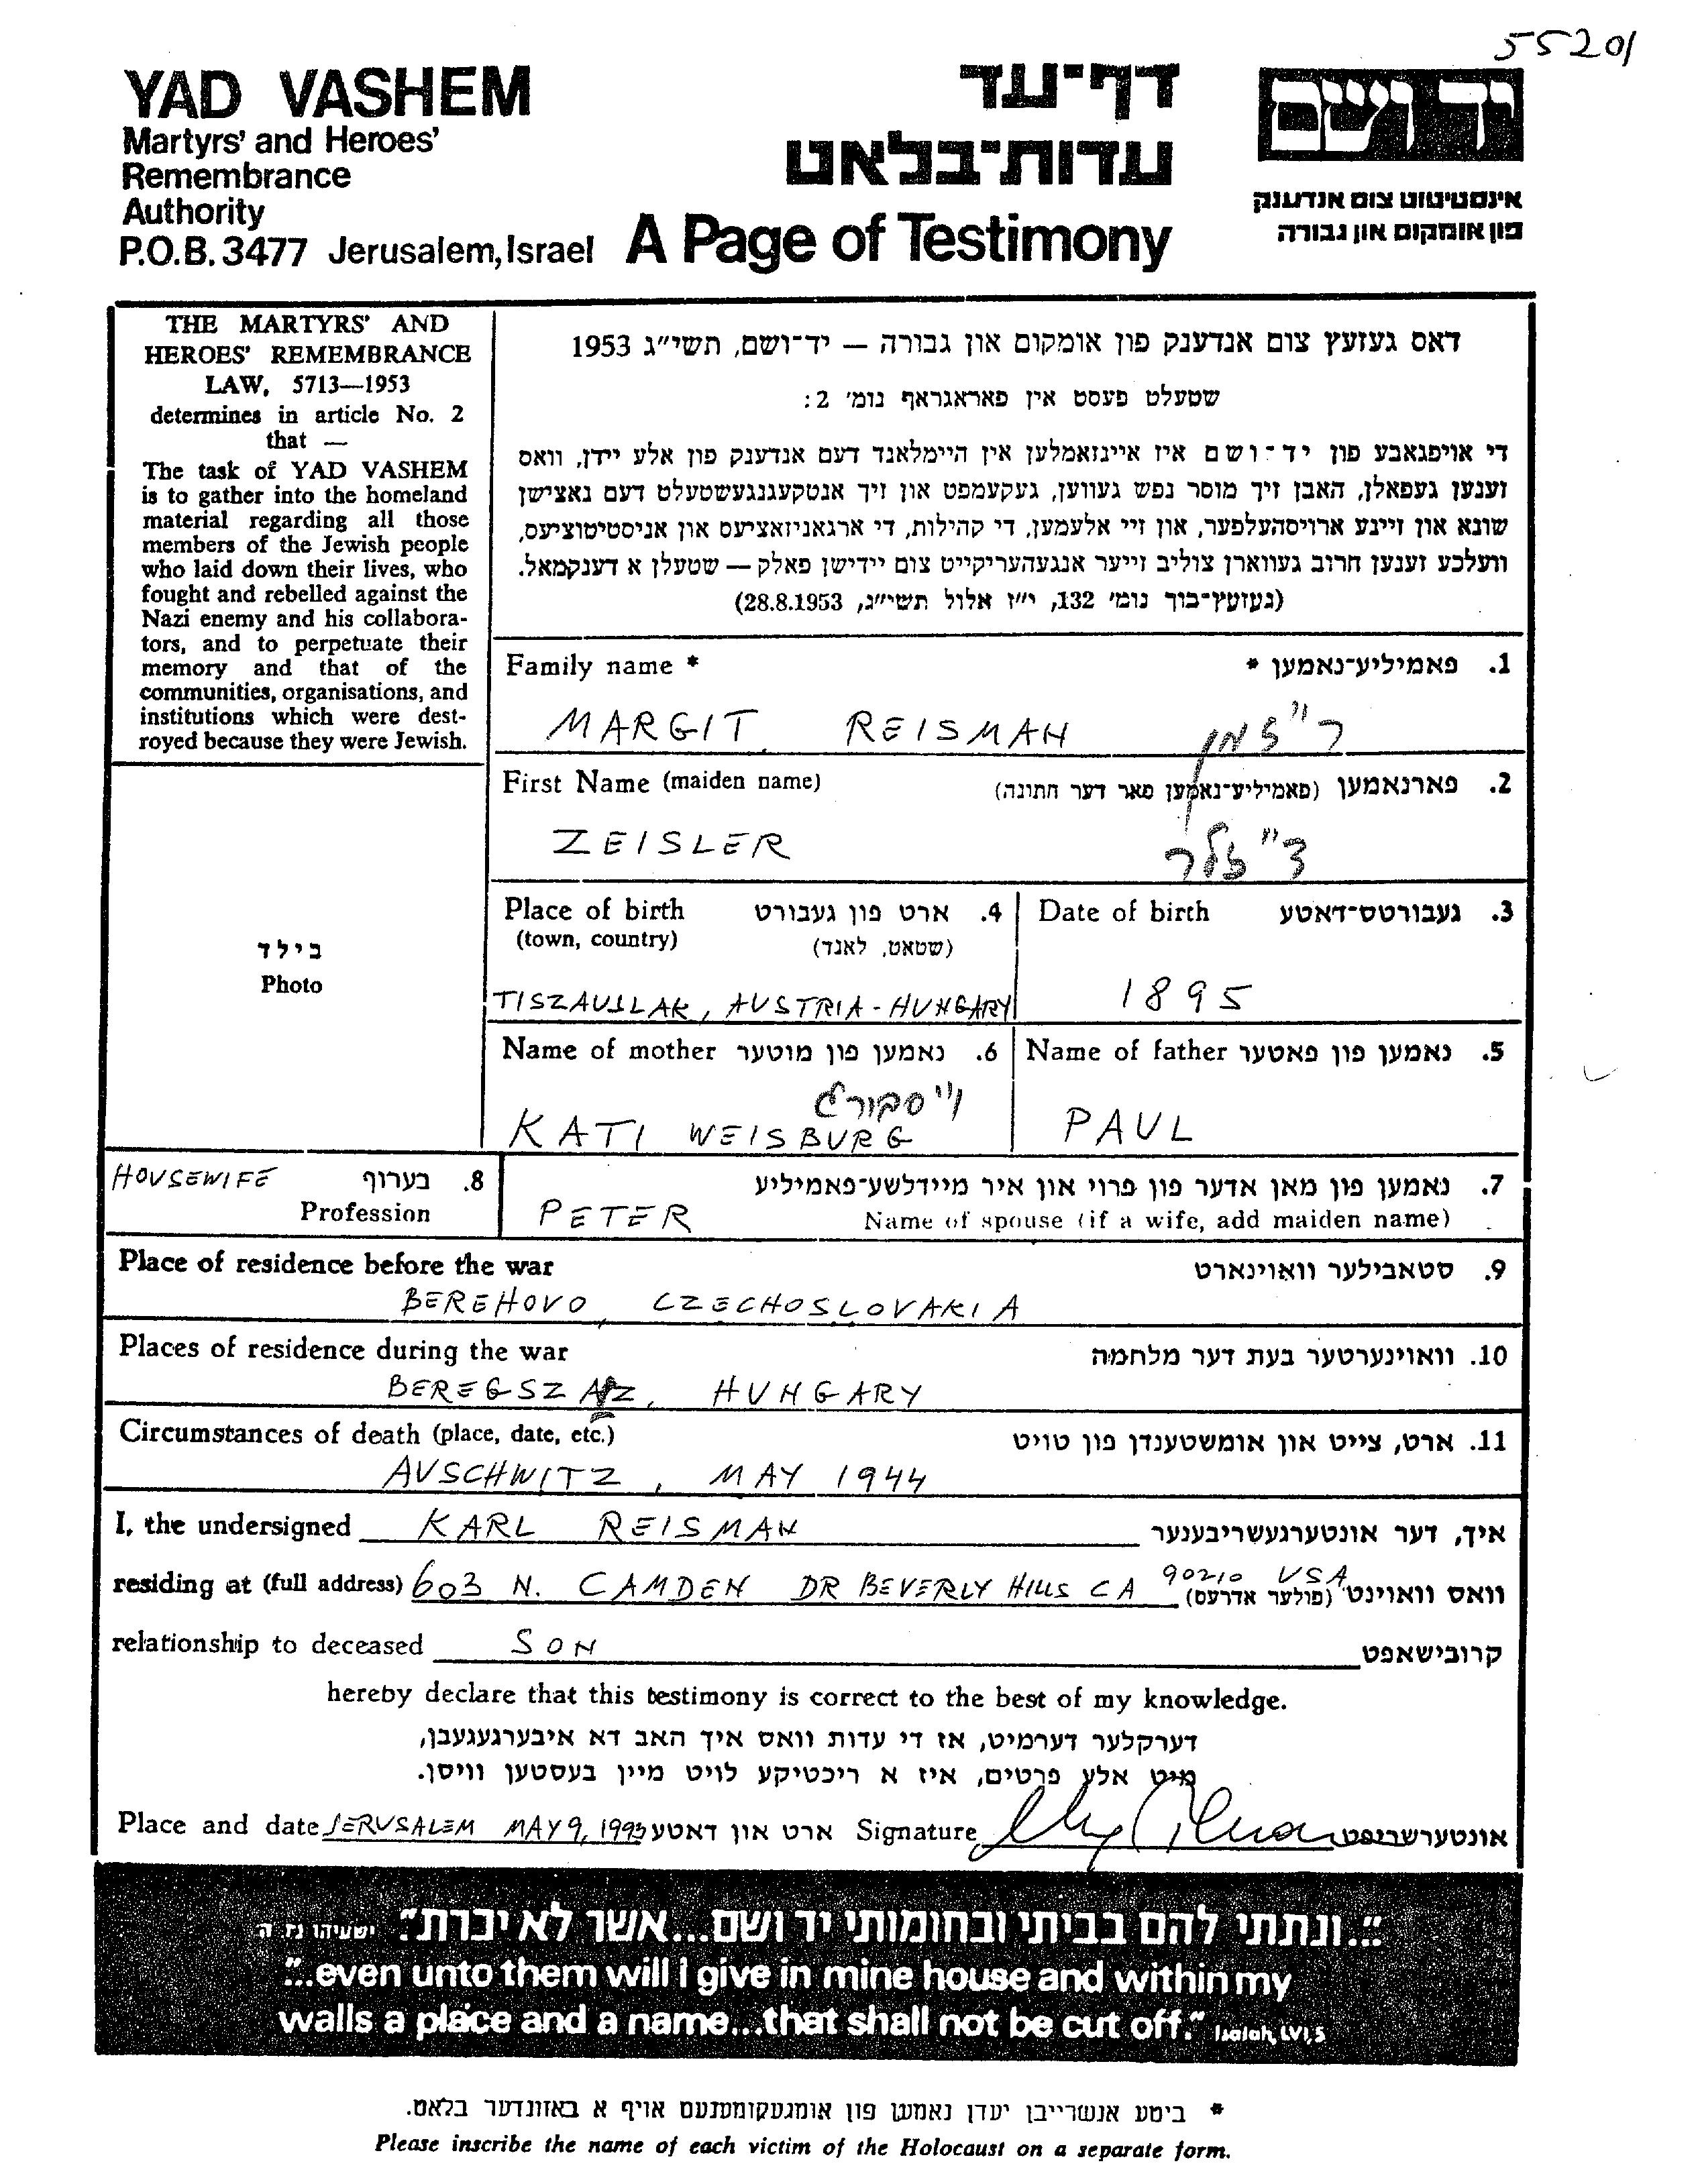 55201
YAD VASHEM
Martyrs' and Heroes'
Remembrance
Authority
P.O.B. 3477 Jerusalem, Israel
דף־עד
עדות־בלאט
A Page of Testimony
יד ושם
אינסטיטוט צום אנדענק
פון אומקום און גבורה
THE MARTYRS' AND
HEROES' REMEMBRANCE
LAW, 5713—1953
determines in article No. 2
that —
The task of YAD VASHEM
is to gather into the homeland
material regarding all those
members of the Jewish people
who laid down their lives, who
fought and rebelled against the
Nazi enemy and his collabora-
tors, and to perpetuate their
memory and that of the
communities, organisations, and
institutions which were dest-
royed because they were Jewish.
דאס געזעץ צום אנדענק פון אומקום און גבורה — יד־ושם, תשי"ג 1953
שטעלט פעסט אין פאראגראף נומ' 2:
די אויפגאבע פון יד־ושם איז איינזאמלען אין היימלאנד דעם אנדענק פון אלע יידן, וואס
זענען געפאלן, האבן זיך מוסר נפש געווען, געקעמפט און זיך אנטקעגנגעשטעלט דעם נאצישן
שונא און זיינע ארויסהעלפער, און זיי אלעמען, די קהילות, די ארגאניזאציעס און אניסטיטוציעס,
וועלכע זענען חרוב געווארן צוליב זייער אנגעהעריקייט צום יידישן פאלק — שטעלן א דענקמאל.
(געזעץ־בוך נומ' 132, י"ז אלול תשי"ג, 28.8.1953)
Family name * 1. פאמיליע־נאמען *
MARGIT REISMAN ר"זמן
First Name (maiden name) 2. פארנאמען (פאמיליע־נאמען פאר דער חתונה)
ZEISLER צ"זלר
Place of birth 4. ארט פון געבורט
(town, country) (שטאט, לאנד)
TISZAUJLAK, AUSTRIA-HUNGARY
Date of birth 3. געבורטס־דאטע
1895
בילד
Photo
Name of mother 6. נאמען פון מוטער
וי"סבורג
KATI WEISBURG
Name of father 5. נאמען פון פאטער
PAUL
HOUSEWIFE 8. בערוף
Profession
7. נאמען פון מאן אדער פון פרוי און איר מיידלשע־פאמיליע
PETER Name of spouse (if a wife, add maiden name)
Place of residence before the war 9. סטאבילער וואוינארט
BEREHOVO, CZECHOSLOVAKIA
Places of residence during the war 10. וואוינערטער בעת דער מלחמה
BEREGSZASZ, HUNGARY
Circumstances of death (place, date, etc.) 11. ארט, צייט און אומשטענדן פון טויט
AUSCHWITZ, MAY 1944
I, the undersigned KARL REISMAN איך, דער אונטערגעשריבענער
residing at (full address) 603 N. CAMDEN DR BEVERLY HILLS CA 90210 USA וואס וואוינט (פולער אדרעס)
relationship to deceased SON קרובישאפט
hereby declare that this testimony is correct to the best of my knowledge.
דערקלער דערמיט, אז די עדות וואס איך האב דא איבערגעגעבן,
מיט אלע פרטים, איז א ריכטיקע לויט מיין בעסטען וויסן.
Place and date JERUSALEM MAY 9, 1993 ארט און דאטע Signature אונטערשריפט
"...ונתתי להם בביתי ובחומותי יד ושם...אשר לא יכרת". ישעיהו נו, ה
"...even unto them will I give in mine house and within my
walls a place and a name...that shall not be cut off." Isaiah, LVI, 5
* ביטע אנשרייבן יעדן נאמען פון אומגעקומענעם אויף א באזונדער בלאט.
Please inscribe the name of each victim of the Holocaust on a separate form.